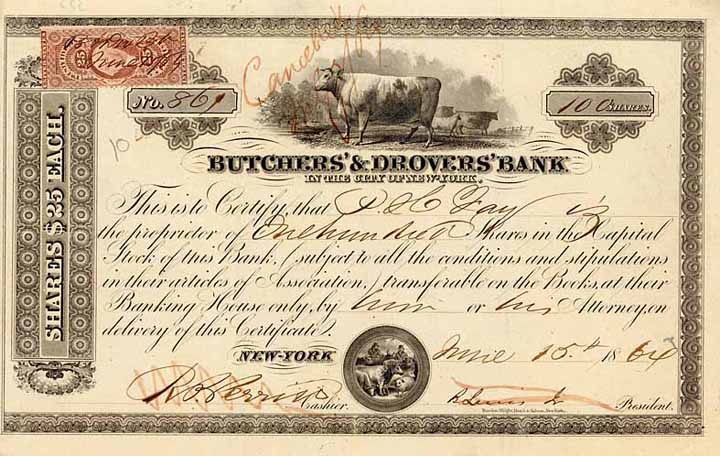 25 25
Cancelled
No. 861
100 SHARES.
SHARES $25 EACH.
BUTCHERS' & DROVERS' BANK
IN THE CITY OF NEW-YORK.
This is to Certify, that P & C Fay is
the proprietor of One hundred Shares in the Capital
Stock of this Bank, (subject to all the conditions and stipulations
in their articles of Association,) transferable on the Books, at their
Banking House only, by him or his Attorney, on
delivery of this Certificate.
NEW-YORK June 15th 1864
Cashier. President.